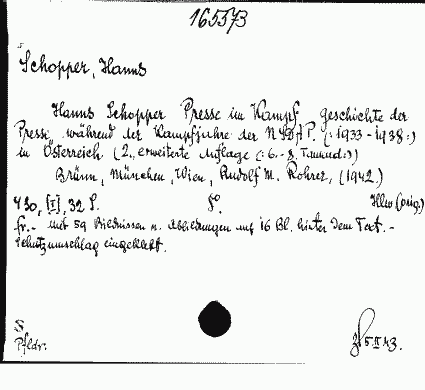 165573
Schopper, Hanns
Hanns Schopper Presse im Kampf Geschichte der
Presse während der Kampfjahre der NSDAP. (:1933-1938:)
in Österreich (2., erweiterte Auflage (:6.-8. Tausend:)
Brünn, München, Wien, Rudolf M. Rohrer, (1942)
430, [1], 32 S. 8°. Hlw (orig.)
Fr.- mit 59 Bildnissen u. Abbildungen auf 16 Bl. hinter dem Text.-
Schutzumschlag eingeklebt.
Pfldr.
5 II 43.